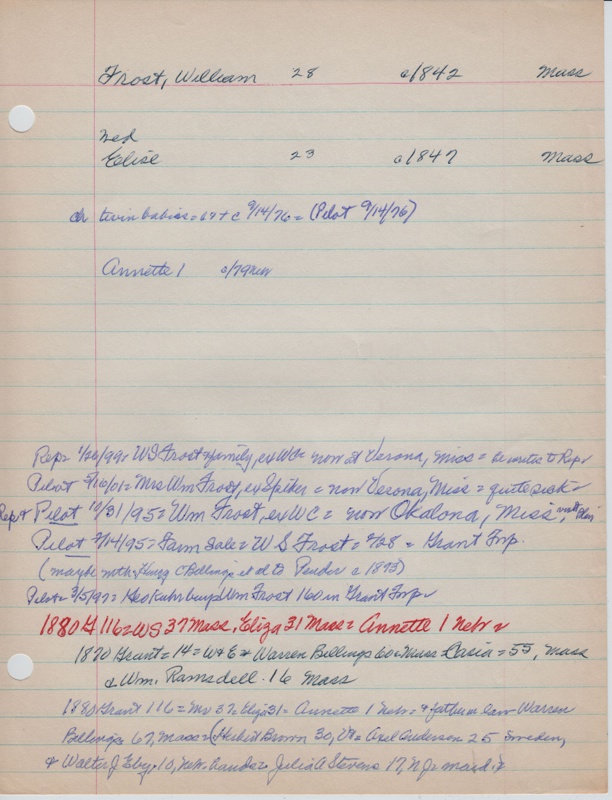 Frost, William 28 a/842 Mass
Wed
Elise 23 a1847 Mass
ch twin babies = b++ c 9/14/76 = (Pilot 9/14/76)
Annette 1 a/79 Nebr
Rep = 1/26/99 = WS Frost + family, ex WC = now at Verona, Miss = he writes to Rep
Pilot = Mrs Wm Frost, ex Spiker = now Verona, Miss = quite sick
Rep + Pilot 10/31/95 = Wm Frost, ex WC = now Okalona, Miss,
Pilot 2/14/95 = Farm Sale = W S Frost = 2/28 = Grant Twp.
(maybe C Billings Pender a 1893)
Pilot = 3/5/97 = Geo Kuhr buys Wm Frost 160 in Grant Twp
1880 G 116 = WS 37 Mass, Eliza 31 Mass = Annette 1 Nebr
1870 Grant = 14 = W & E + Warren Billings 60 = Mass = = 55, Mass
& Wm. Ramsdell 16 Mass
1880 Grant 116 = 37 Eliza 31 = Annette 1 Nebr = + father in law Warren
Billings 67, Mass = (Hubert Brown 30, Vt = Axel Anderson 25 Sweden,
& Walter J 10, = Julia A Stevens 17, N J =